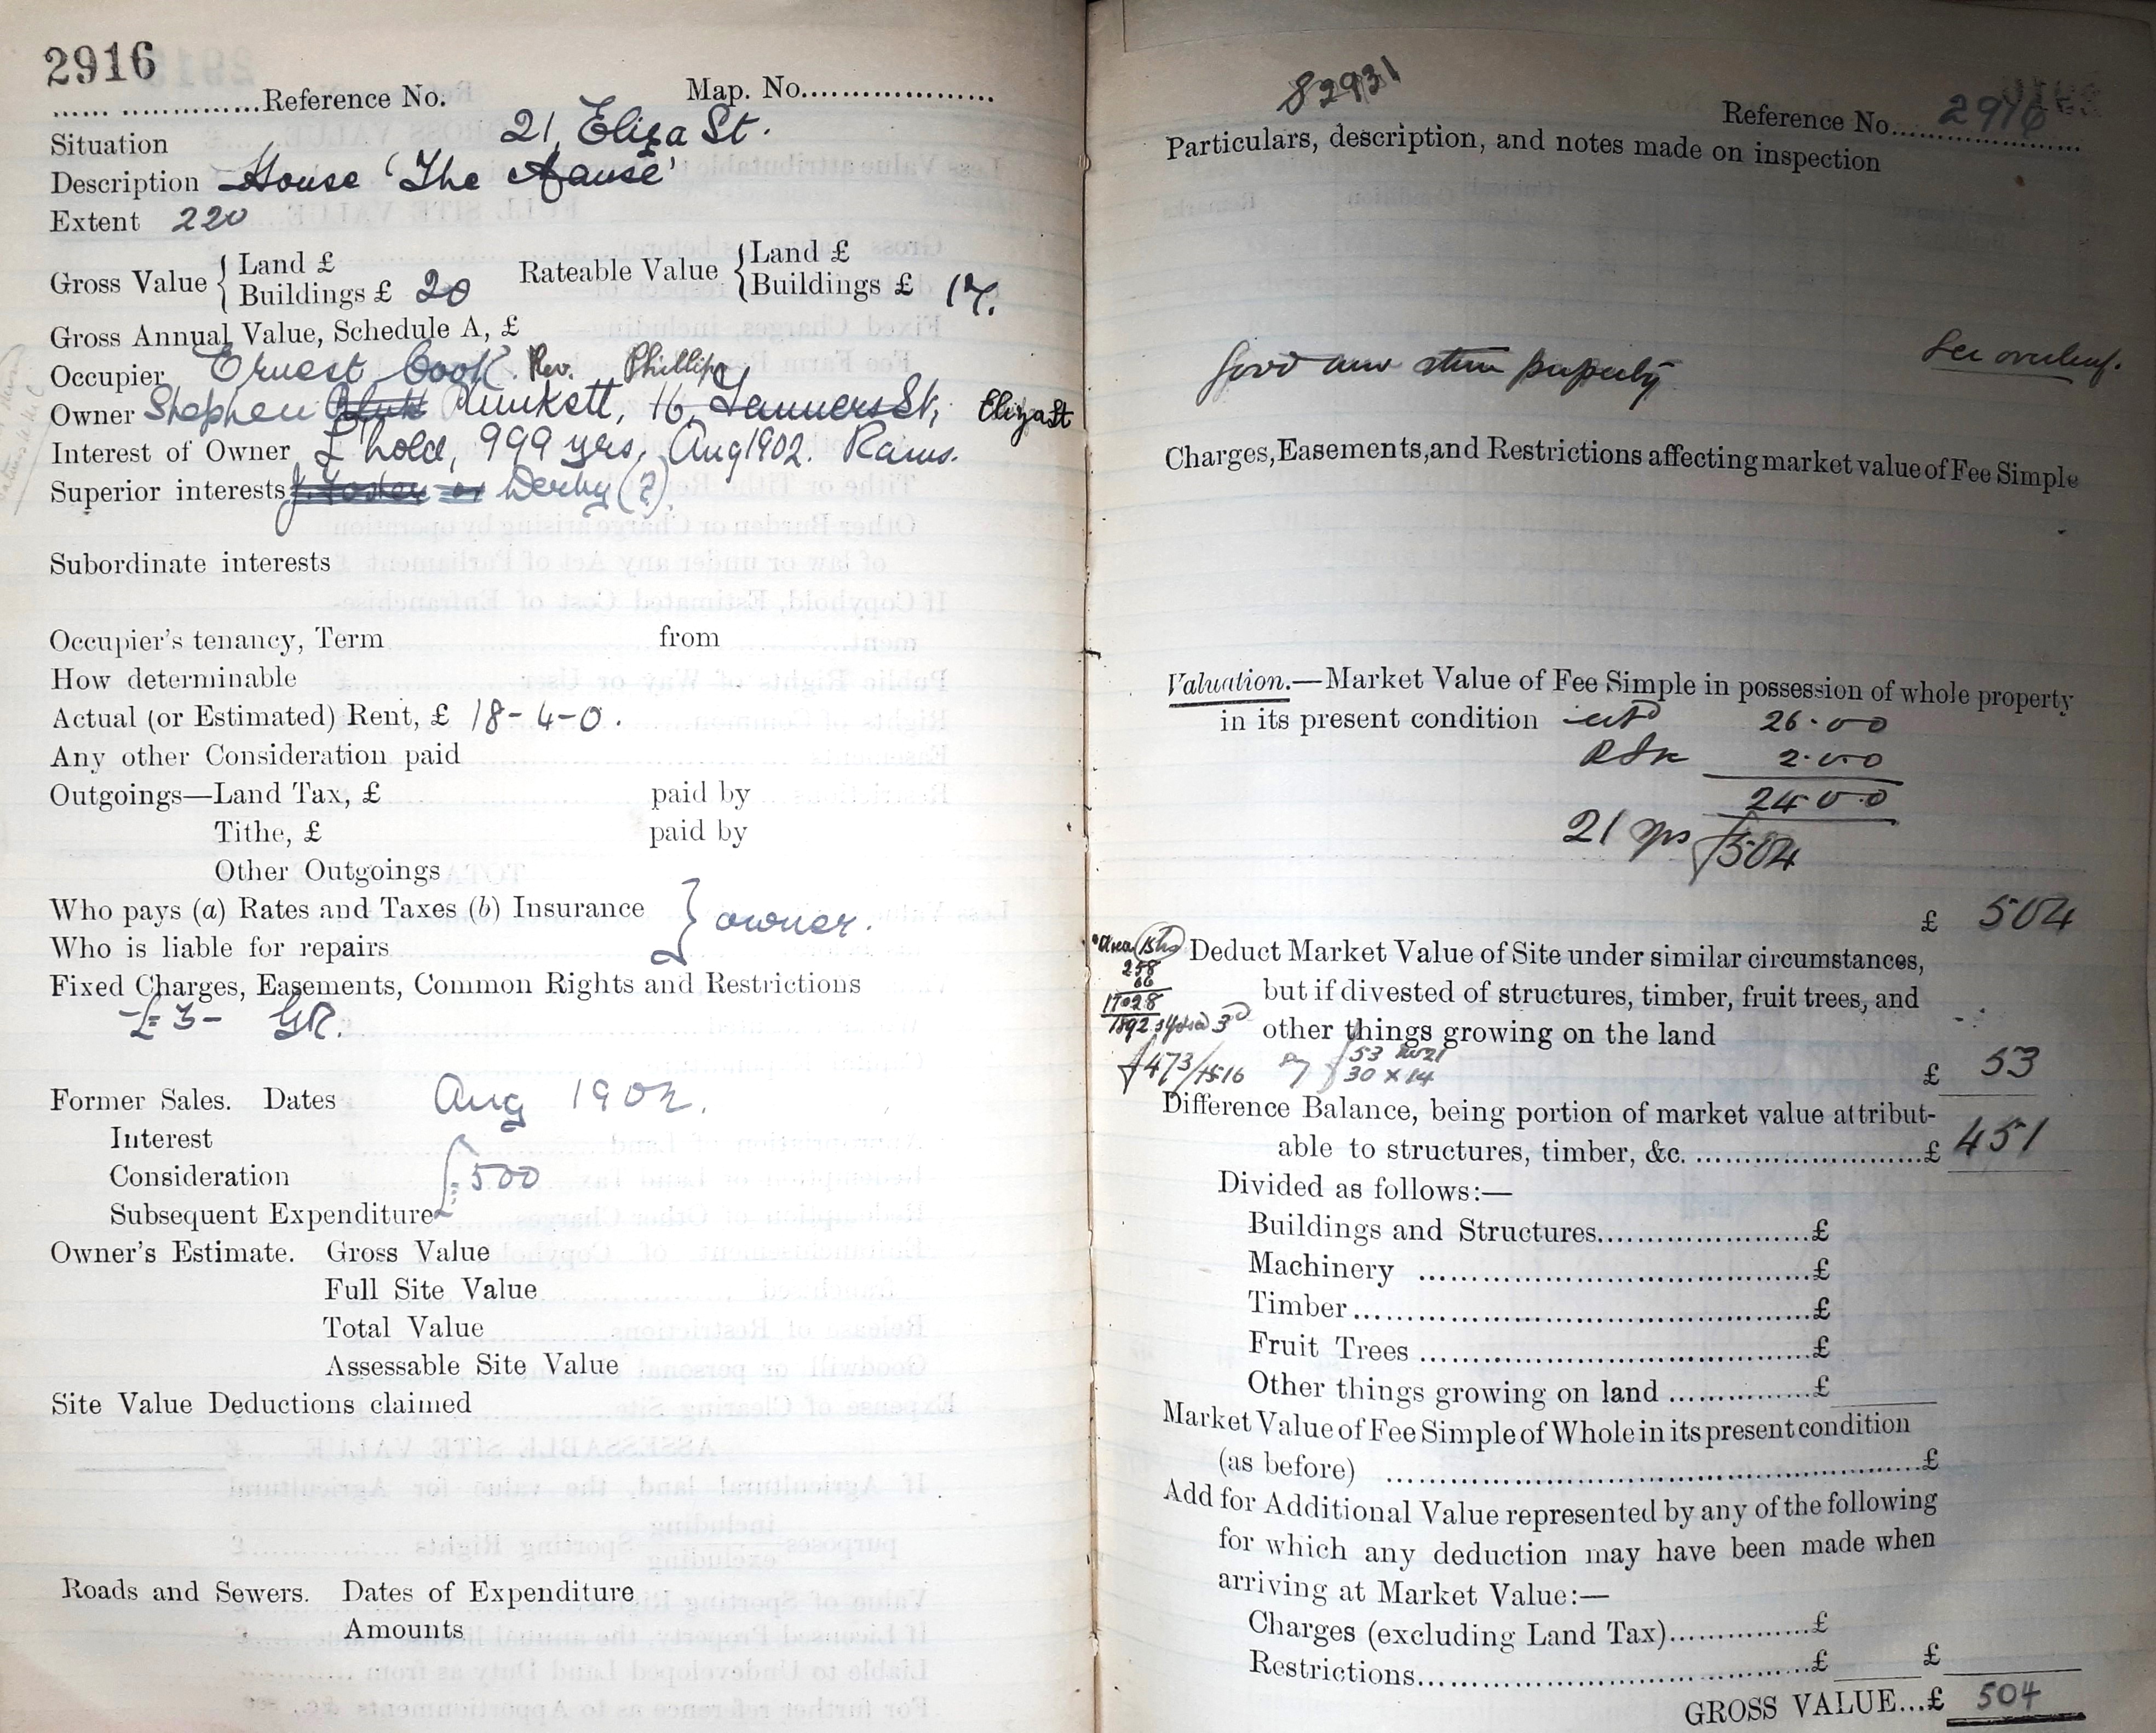 2916
.................... Reference No. Map. No....................
Situation 21, Eliza St.
Description House 'The
Extent 220
Gross Value { Land £ Buildings £ 20 Rateable Value { Land £ Buildings £ 17.
Gross Annual Value, Schedule A, £
Occupier Ernest Cook. Rev. Phillips
Owner Stephen Plunkett, 16, Tanners St, Eliza St
Interest of Owner L'hold, 999 yrs, Aug 1902. Rams.
Superior interests Derby (?)
Subordinate interests
Occupier's tenancy, Term from
How determinable
Actual (or Estimated) Rent, £ 18-4-0.
Any other Consideration paid
Outgoings—Land Tax, £ paid by
Tithe, £ paid by
Other Outgoings
Who pays (a) Rates and Taxes (b) Insurance } owner.
Who is liable for repairs
Fixed Charges, Easements, Common Rights and Restrictions
£3- GR.
Former Sales. Dates Aug 1902.
Interest
Consideration £500
Subsequent Expenditure
Owner's Estimate. Gross Value
Full Site Value
Total Value
Assessable Site Value
Site Value Deductions claimed
Roads and Sewers. Dates of Expenditure
Amounts
82931
Reference No. 2916
Particulars, description, and notes made on inspection
Good new stone property
See overleaf.
Charges, Easements, and Restrictions affecting market value of Fee Simple
Valuation.—Market Value of Fee Simple in possession of whole property
in its present condition 26.0.0
2.0.0
24.0.0
21 yps £504
£ 504
Area
258
66
17028
1892
£473
Deduct Market Value of Site under similar circumstances,
but if divested of structures, timber, fruit trees, and
other things growing on the land
£53
30 x 14
£ 53
Difference Balance, being portion of market value attribut-
able to structures, timber, &c. ....................£ 451
Divided as follows:—
Buildings and Structures....................£
Machinery ....................£
Timber....................£
Fruit Trees ....................£
Other things growing on land ...............£
Market Value of Fee Simple of Whole in its present condition
(as before) ....................£
Add for Additional Value represented by any of the following
for which any deduction may have been made when
arriving at Market Value:—
Charges (excluding Land Tax)...............£
Restrictions....................£ £
GROSS VALUE...£ 504